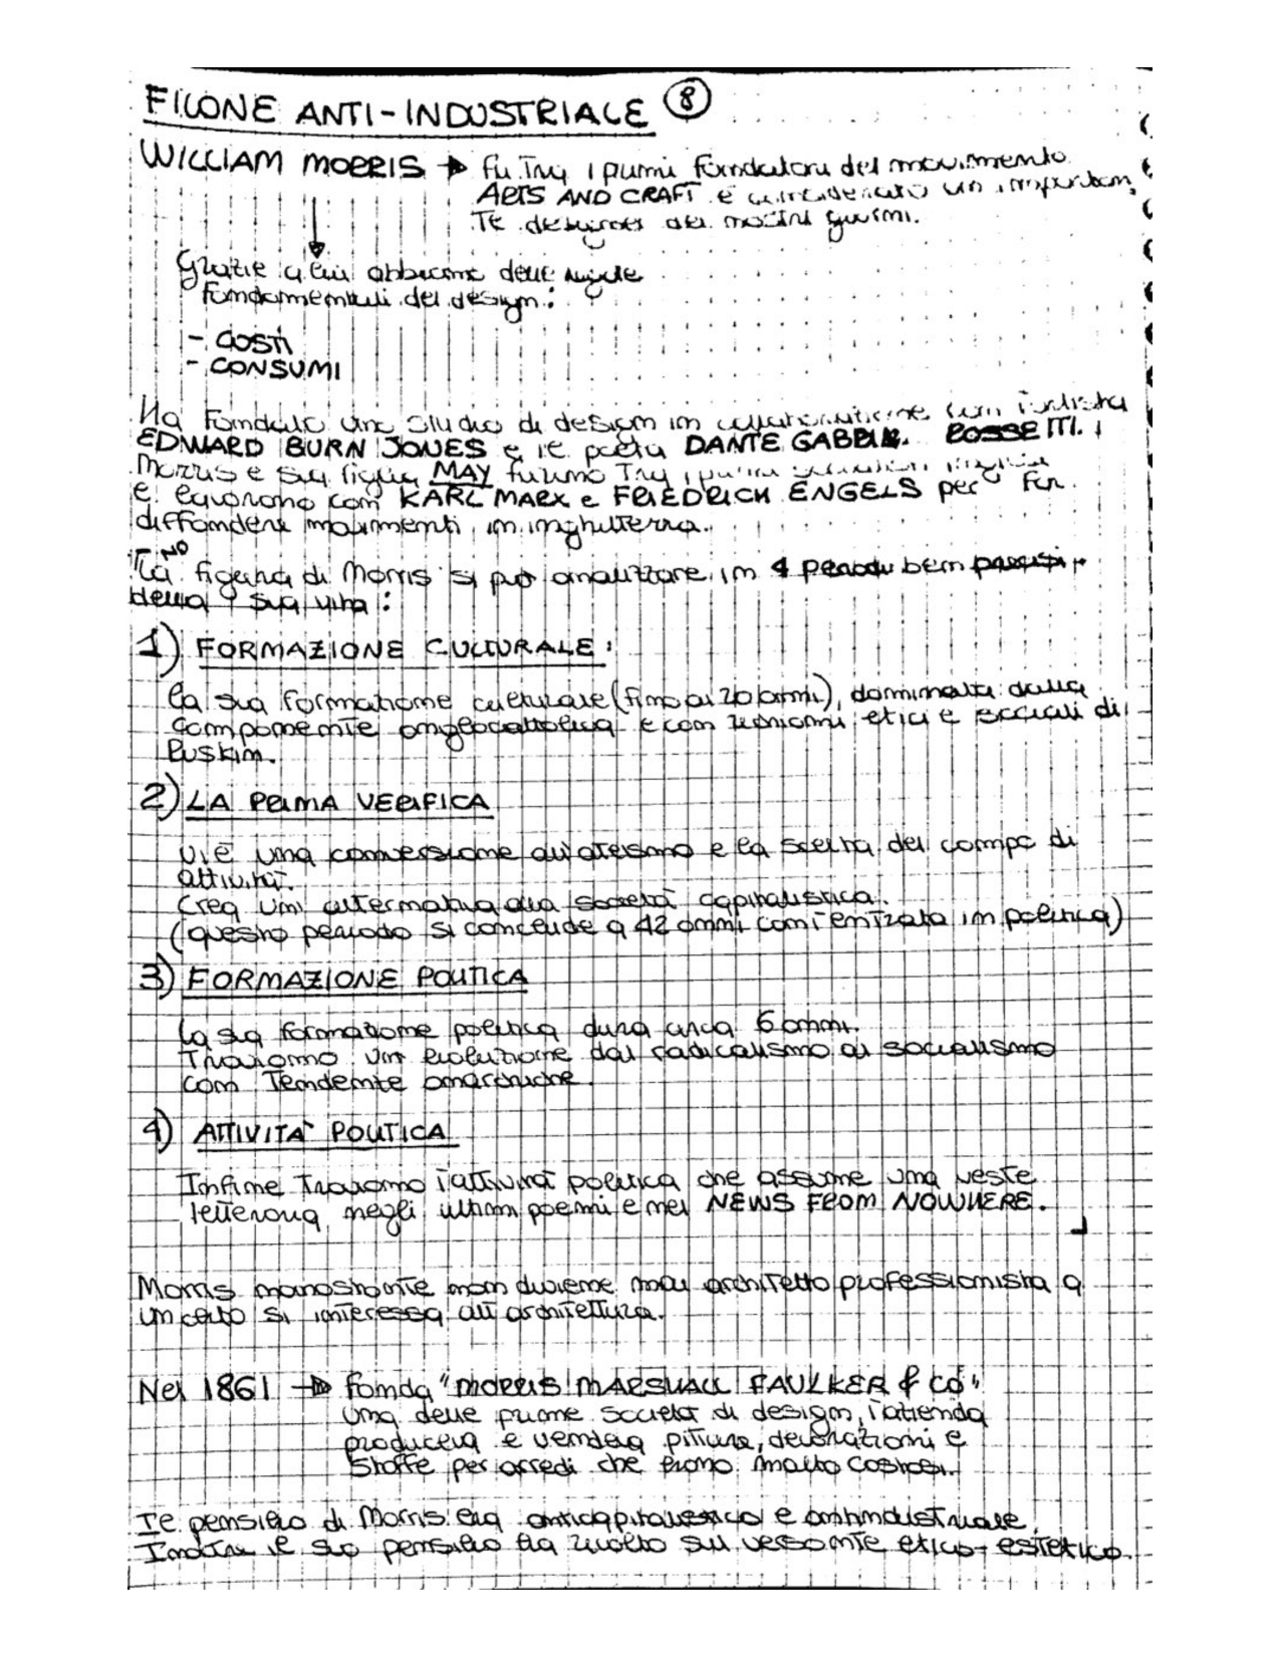 FILONE ANTI-INDUSTRIALE 8
WILLIAM MORRIS → fu tra i primi fondatori del movimento
ARTS AND CRAFT e considerato un importan
te designer dei nostri giorni.
Grazie a lui abbiamo delle regole
fondamentali del design:
- COSTI
- CONSUMI
Ha fondato uno studio di design in collaborazione con l'artista
EDWARD BURN JONES e il poeta DANTE GABRIEL ROSSETTI.
Morris e sua figlia MAY furono tra i primi
e lavorano con KARL MARX e FRIEDRICH ENGELS per far
diffondere movimenti in inghilterra.
NO
La figura di Morris si può analizzare in 4 periodi ben precisi
della sua vita:
1) FORMAZIONE CULTURALE:
la sua formazione culturale (fino ai 20 anni), dominata dalla
componente anglocattolica e con etici e sociali di
Ruskin.
2) LA PRIMA VERIFICA
Vi è una conversione all'ateismo e la scelta del campo di
attività.
Crea un'alternativa alla società capitalistica.
(questo periodo si conclude a 42 anni con l'entrata in politica)
3) FORMAZIONE POLITICA
La sua formazione politica dura circa 6 anni.
Troviamo un evoluzione dal radicalismo al socialismo
con tendenze anarchiche.
4) ATTIVITA' POLITICA
Infine troviamo l'attività politica che assume una veste
letteraria negli ultimi poemi e nel NEWS FROM NOWHERE.
Morris nonostante non diviene mai architetto professionista a
un certo si interessa all'architettura.
Nel 1861 → fonda "MORRIS MARSHALL FAULKER & CO"
una delle prime società di design, l'azienda
produceva e vendeva pitture, decorazioni e
stoffe per arredi che erano molto costosi.
Il pensiero di Morris era anticapitalistico e antindustriale.
Inoltre il suo pensiero era rivolto sul versante etico-estetico.